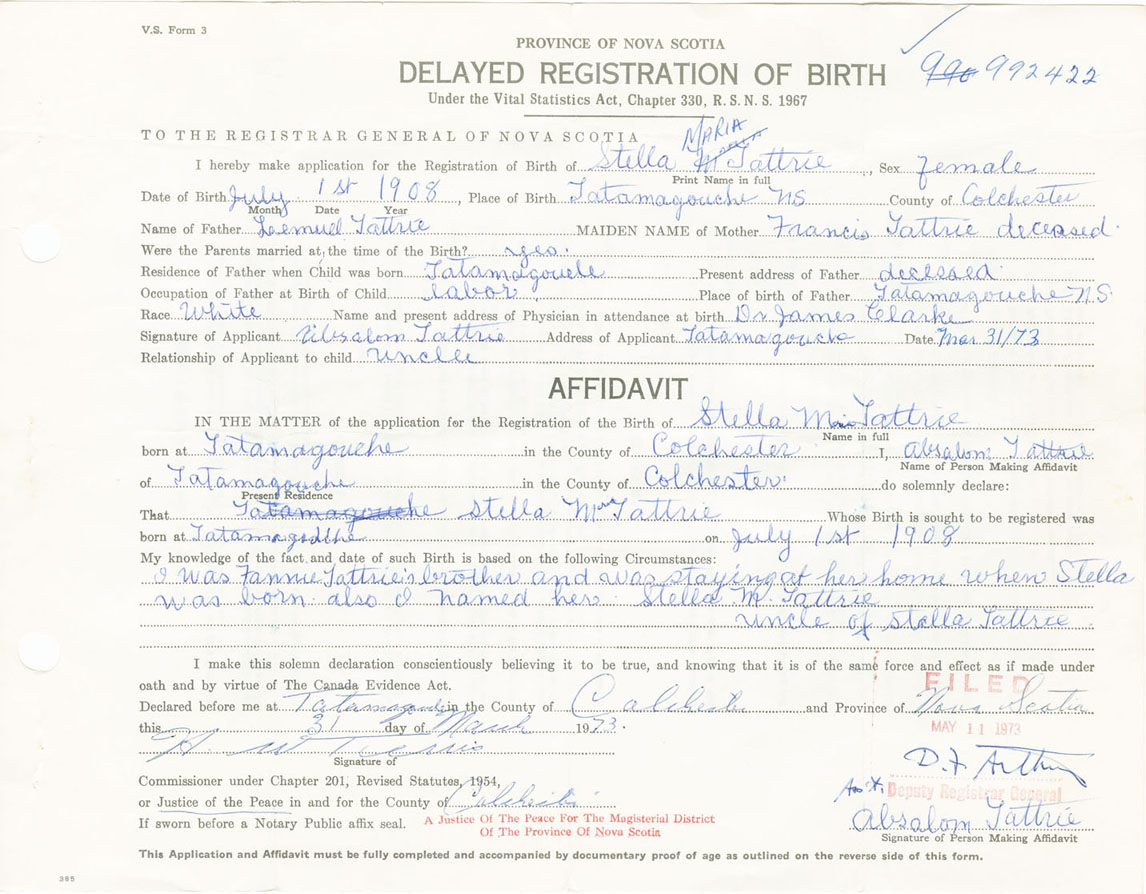 V.S. Form 3
PROVINCE OF NOVA SCOTIA
DELAYED REGISTRATION OF BIRTH
990 992422
Under the Vital Statistics Act, Chapter 330, R.S.N.S. 1967
TO THE REGISTRAR GENERAL OF NOVA SCOTIA
MARIA
I hereby make application for the Registration of Birth of Stella M Tattrie, Sex female
Print Name in full
Date of Birth July 1st 1908, Place of Birth Tatamagouche NS County of Colchester
Month Date Year
Name of Father Lemuel Tattrie MAIDEN NAME of Mother Francis Tattrie deceased.
Were the Parents married at the time of the Birth? yes.
Residence of Father when Child was born Tatamagouche Present address of Father decessed
Occupation of Father at Birth of Child labor Place of birth of Father Tatamagouche N.S.
Race White Name and present address of Physician in attendance at birth Dr James Clarke
Signature of Applicant Absalom Tattrie Address of Applicant Tatamagouche Date Mar 31/73
Relationship of Applicant to child unclle
AFFIDAVIT
IN THE MATTER of the application for the Registration of the Birth of Stella M Tattrie
Name in full
born at Tatamagouche in the County of Colchester I, Absalom Tattrie
Name of Person Making Affidavit
of Tatamagouche in the County of Colchester do solemnly declare:
Present Residence
That Tatamagouche Stella M Tattrie Whose Birth is sought to be registered was
born at on July 1st 1908
My knowledge of the fact and date of such Birth is based on the following Circumstances:
I was Fannie Tattrie's brother and was staying at her home when Stella
was born. also I named her Stella M. Tattrie
uncle of Stella Tattrie
I make this solemn declaration conscientiously believing it to be true, and knowing that it is of the same force and effect as if made under
oath and by virtue of The Canada Evidence Act.
FILED
Declared before me at in the County of and Province of Nova Scotia
this 31 day of March 1973.
MAY 11 1973
Signature of
D.F. Arthur
Commissioner under Chapter 201, Revised Statutes, 1954,
Ass't. Deputy Registrar General
or Justice of the Peace in and for the County of
Absalom Tattrie
If sworn before a Notary Public affix seal. A Justice Of The Peace For The Magisterial District
Of The Province Of Nova Scotia
Signature of Person Making Affidavit
This Application and Affidavit must be fully completed and accompanied by documentary proof of age as outlined on the reverse side of this form.
385